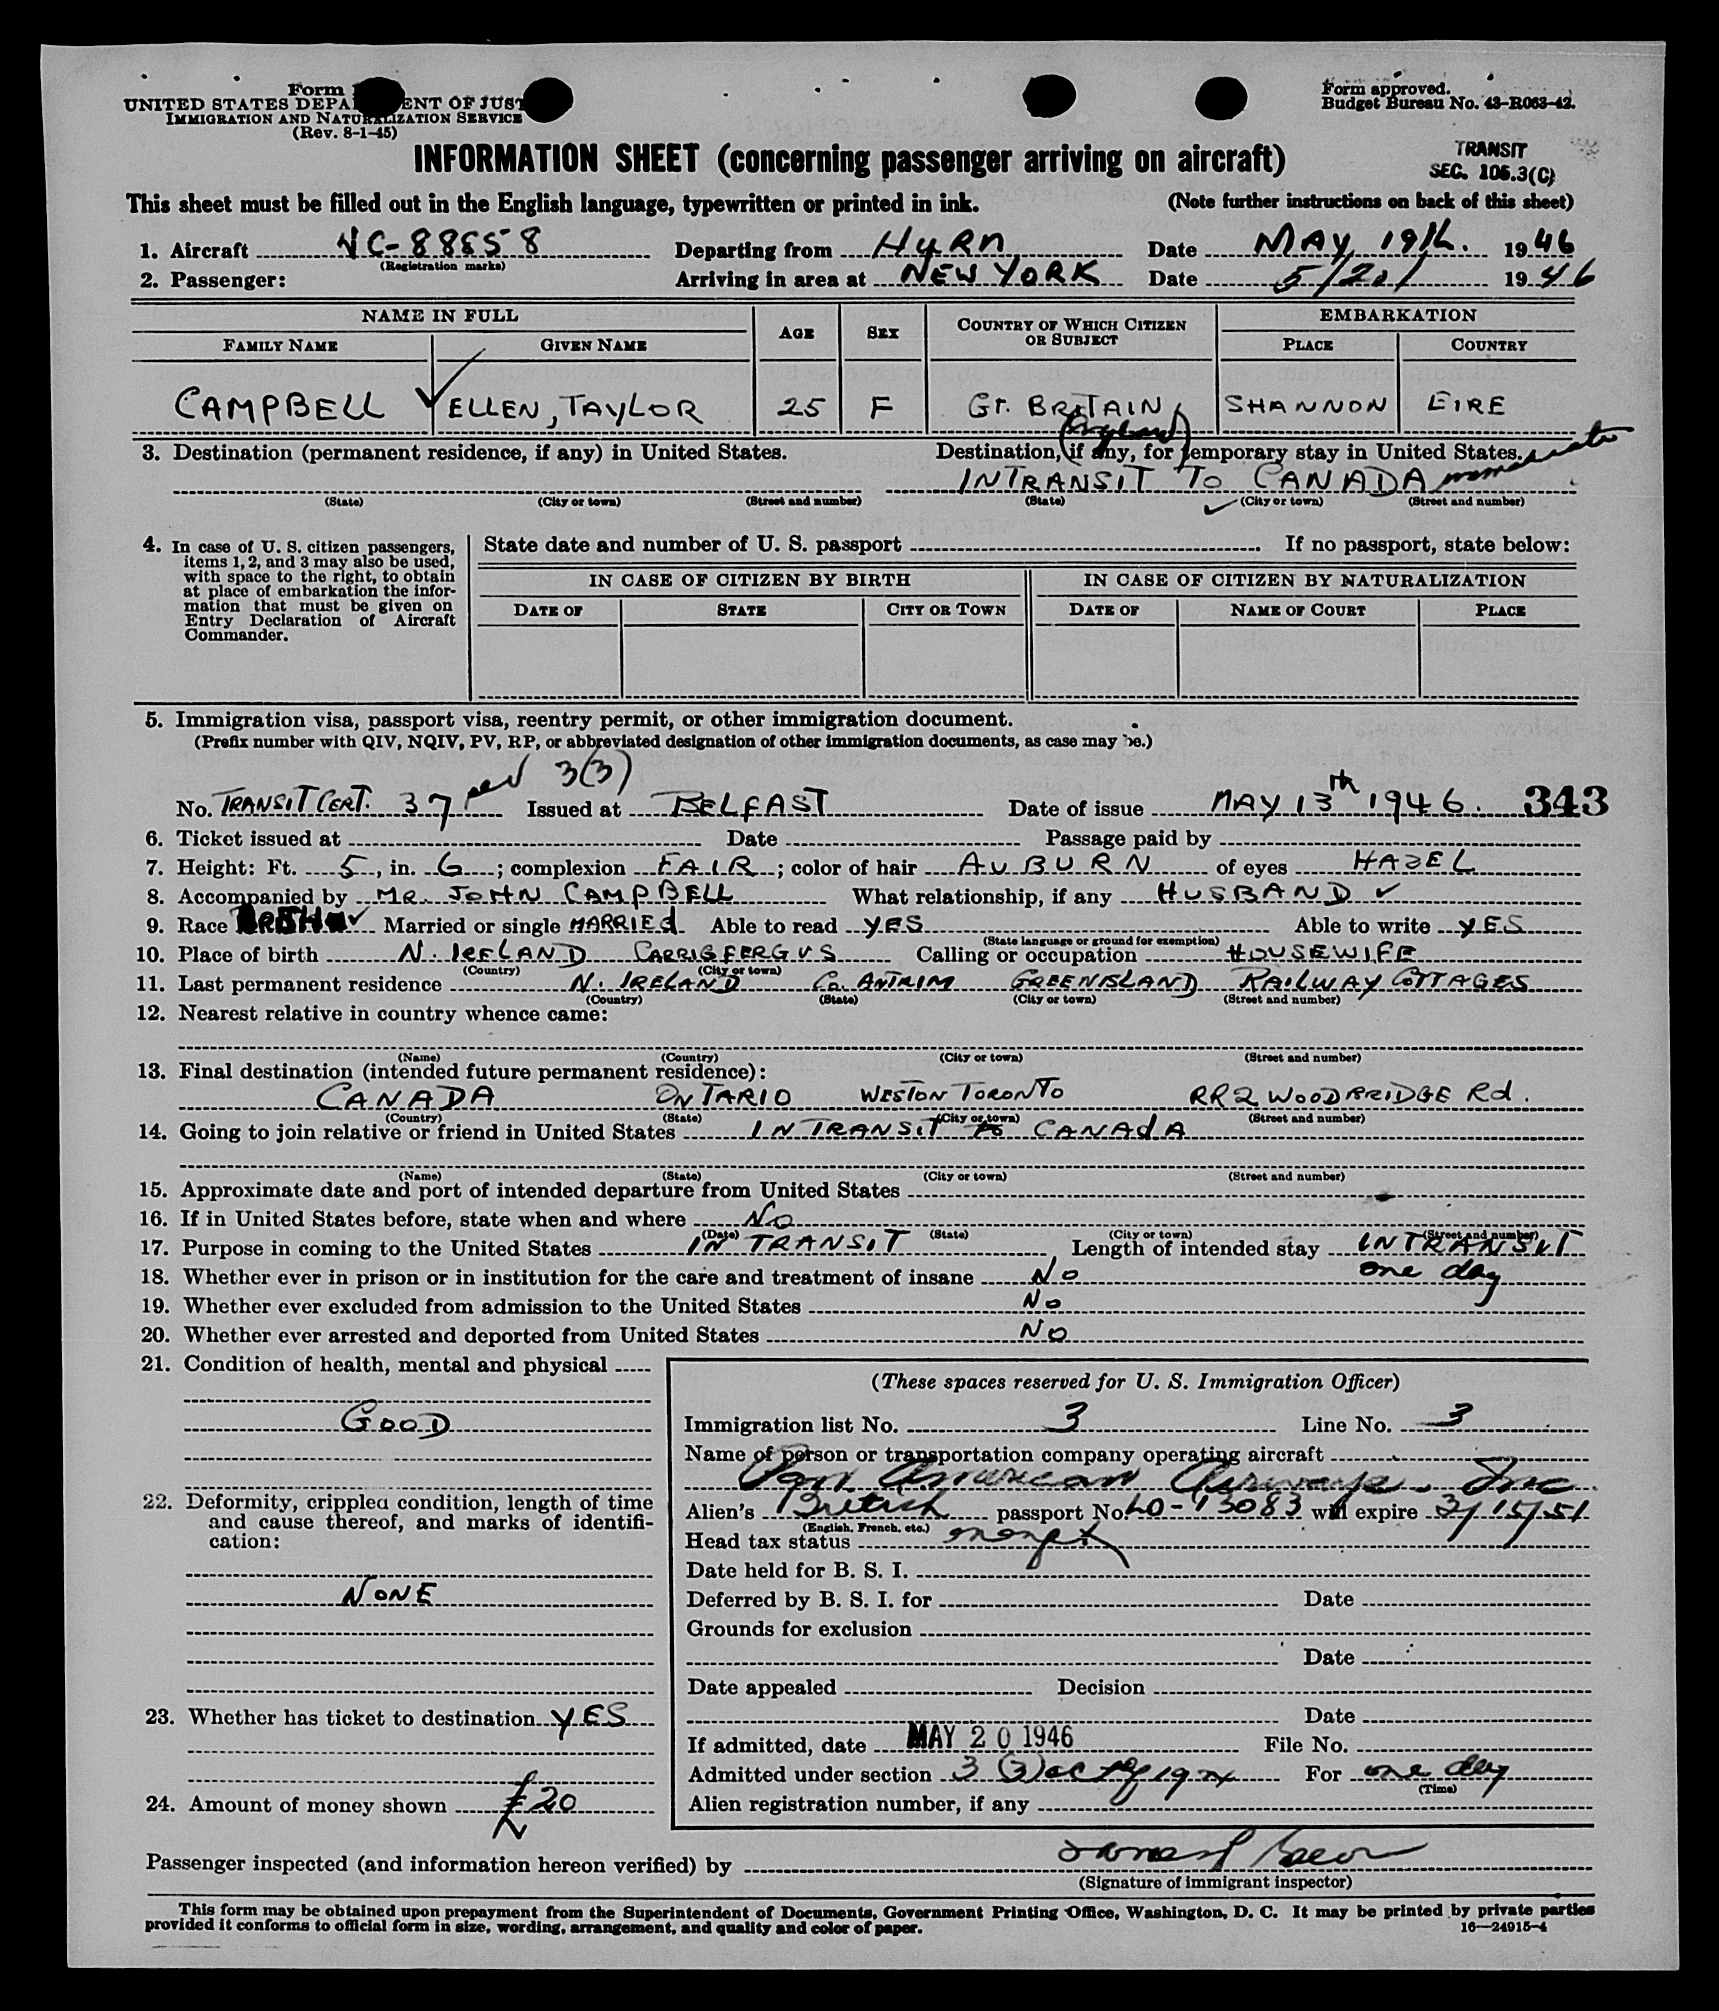 Form
UNITED STATES DEPA ENT OF JUST
IMMIGRATION AND NATURALIZATION SERVICE
(Rev. 8-1-45)
Form approved.
Budget Bureau No. 43-R063-42.
INFORMATION SHEET (concerning passenger arriving on aircraft)
TRANSIT
SEC. 105.3(C)
This sheet must be filled out in the English language, typewritten or printed in ink. (Note further instructions on back of this sheet)
1. Aircraft NC-88858 Departing from HURN Date MAY 19th. 1946
(Registration marks)
2. Passenger: Arriving in area at NEW YORK Date 5/20/ 1946
NAME IN FULL AGE SEX COUNTRY OF WHICH CITIZEN OR SUBJECT EMBARKATION
FAMILY NAME GIVEN NAME PLACE COUNTRY
CAMPBELL ELLEN, TAYLOR 25 F GT. BRITAIN SHANNON EIRE
(England)
3. Destination (permanent residence, if any) in United States. Destination, if any, for temporary stay in United States.
INTRANSIT TO CANADA immediate
(State) (City or town) (Street and number) (State) (City or town) (Street and number)
4. In case of U. S. citizen passengers, items 1, 2, and 3 may also be used, with space to the right, to obtain at place of embarkation the information that must be given on Entry Declaration of Aircraft Commander.
State date and number of U. S. passport . If no passport, state below:
IN CASE OF CITIZEN BY BIRTH IN CASE OF CITIZEN BY NATURALIZATION
DATE OF STATE CITY OR TOWN DATE OF NAME OF COURT PLACE
5. Immigration visa, passport visa, reentry permit, or other immigration document.
(Prefix number with QIV, NQIV, PV, RP, or abbreviated designation of other immigration documents, as case may be.)
3(3)
No. TRANSIT CERT. 37 Issued at BELFAST Date of issue MAY 13th 1946. 343
6. Ticket issued at Date Passage paid by
7. Height: Ft. 5, in. 6; complexion FAIR; color of hair AUBURN of eyes HAZEL
8. Accompanied by MR. JOHN CAMPBELL What relationship, if any HUSBAND
9. Race Married or single MARRIEd Able to read YES Able to write YES
(State language or ground for exemption)
10. Place of birth N. IRELAND CARRIGFERGUS Calling or occupation HOUSEWIFE
(Country) (City or town)
11. Last permanent residence N. IRELAND Co. ANTRIM GREENISLAND RAILWAY COTTAGES
(Country) (State) (City or town) (Street and number)
12. Nearest relative in country whence came:
(Name) (Country) (City or town) (Street and number)
13. Final destination (intended future permanent residence):
CANADA ONTARIO WESTON TORONTO RR2 WOODBRIDGE Rd.
(Country) (State) (City or town) (Street and number)
14. Going to join relative or friend in United States IN TRANSIT to CANAdA
(Name) (State) (City or town) (Street and number)
15. Approximate date and port of intended departure from United States
16. If in United States before, state when and where NO
(Date) (State) (City or town) (Street and number)
17. Purpose in coming to the United States IN TRANSIT Length of intended stay INTRANSIT
one day
18. Whether ever in prison or in institution for the care and treatment of insane NO
19. Whether ever excluded from admission to the United States NO
20. Whether ever arrested and deported from United States NO
21. Condition of health, mental and physical
GOOD
22. Deformity, crippled condition, length of time and cause thereof, and marks of identification:
NONE
23. Whether has ticket to destination YES
24. Amount of money shown £20
(These spaces reserved for U. S. Immigration Officer)
Immigration list No. 3 Line No. 3
Name of person or transportation company operating aircraft
Pan American Airways. Inc
Alien's British passport No. LO-13083 will expire 3/15/51
(English, French, etc.)
Head tax status
Date held for B. S. I.
Deferred by B. S. I. for Date
Grounds for exclusion
Date
Date appealed Decision
Date
If admitted, date MAY 20 1946 File No.
Admitted under section 3 (3) act of 1924 For one day
(Time)
Alien registration number, if any
Passenger inspected (and information hereon verified) by
(Signature of immigrant inspector)
This form may be obtained upon prepayment from the Superintendent of Documents, Government Printing Office, Washington, D. C. It may be printed by private parties
provided it conforms to official form in size, wording, arrangement, and quality and color of paper. 16—24915-4